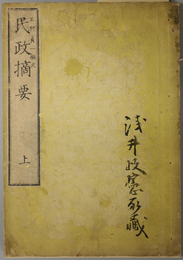 民政摘要
上
浅井政憲所蔵